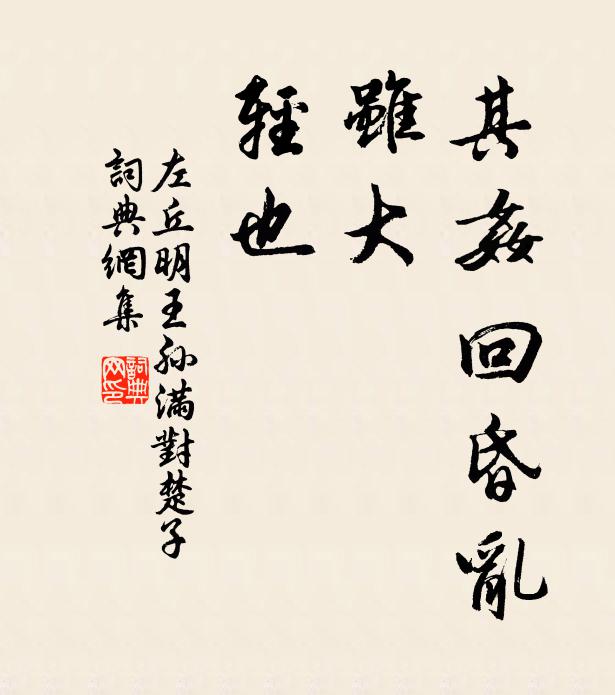 其姦回昏亂
雖大
輕也
左丘明王孫滿對楚子
詞典網集
詞典網印